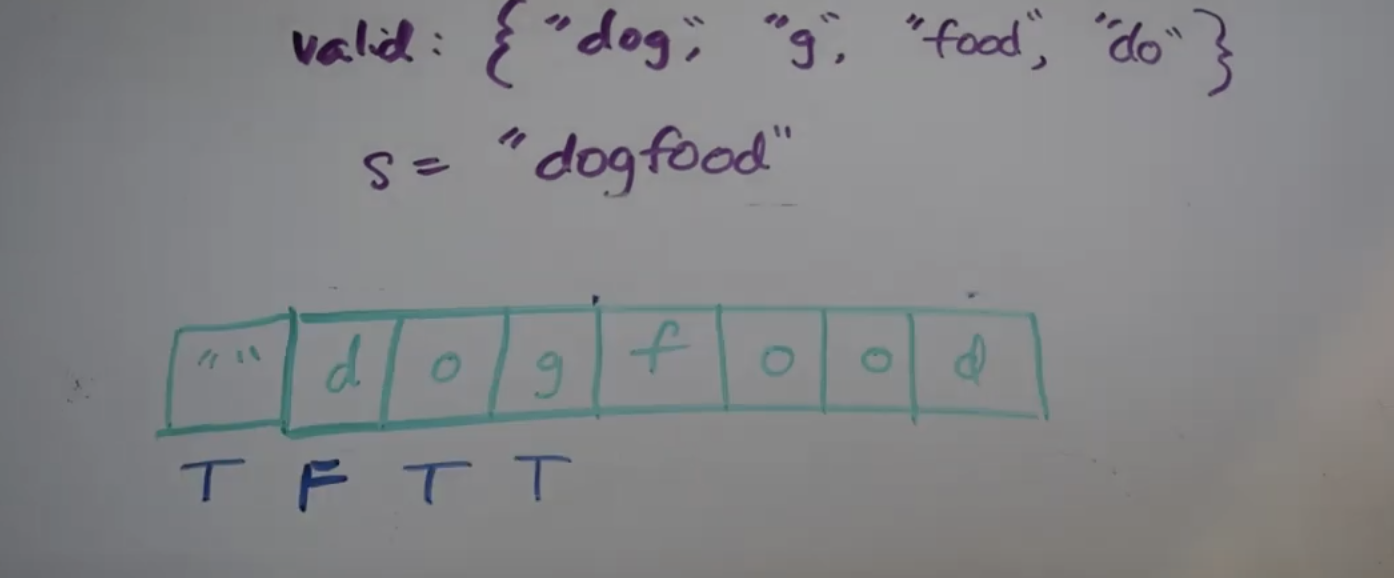 valid: { "dog", "g", "food", "do" }
s = "dogfood"
"" d o g f o o d
T F T T